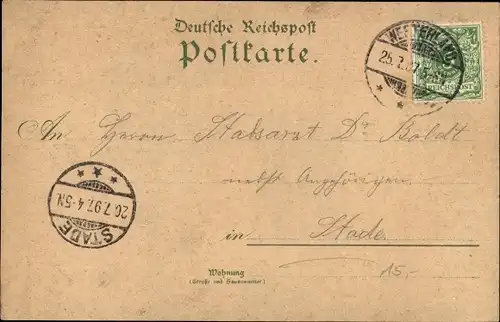 Deutsche Reichspost
Postkarte.
WESTERLAND
25.7.97
REICHSPOST
An Herrn Stabsarzt Dr Boldt
nebst Angehörigen
in Stade.
STADE
26.7.97. 4-5N
Wohnung
(Straße und Hausnummer)
15,-